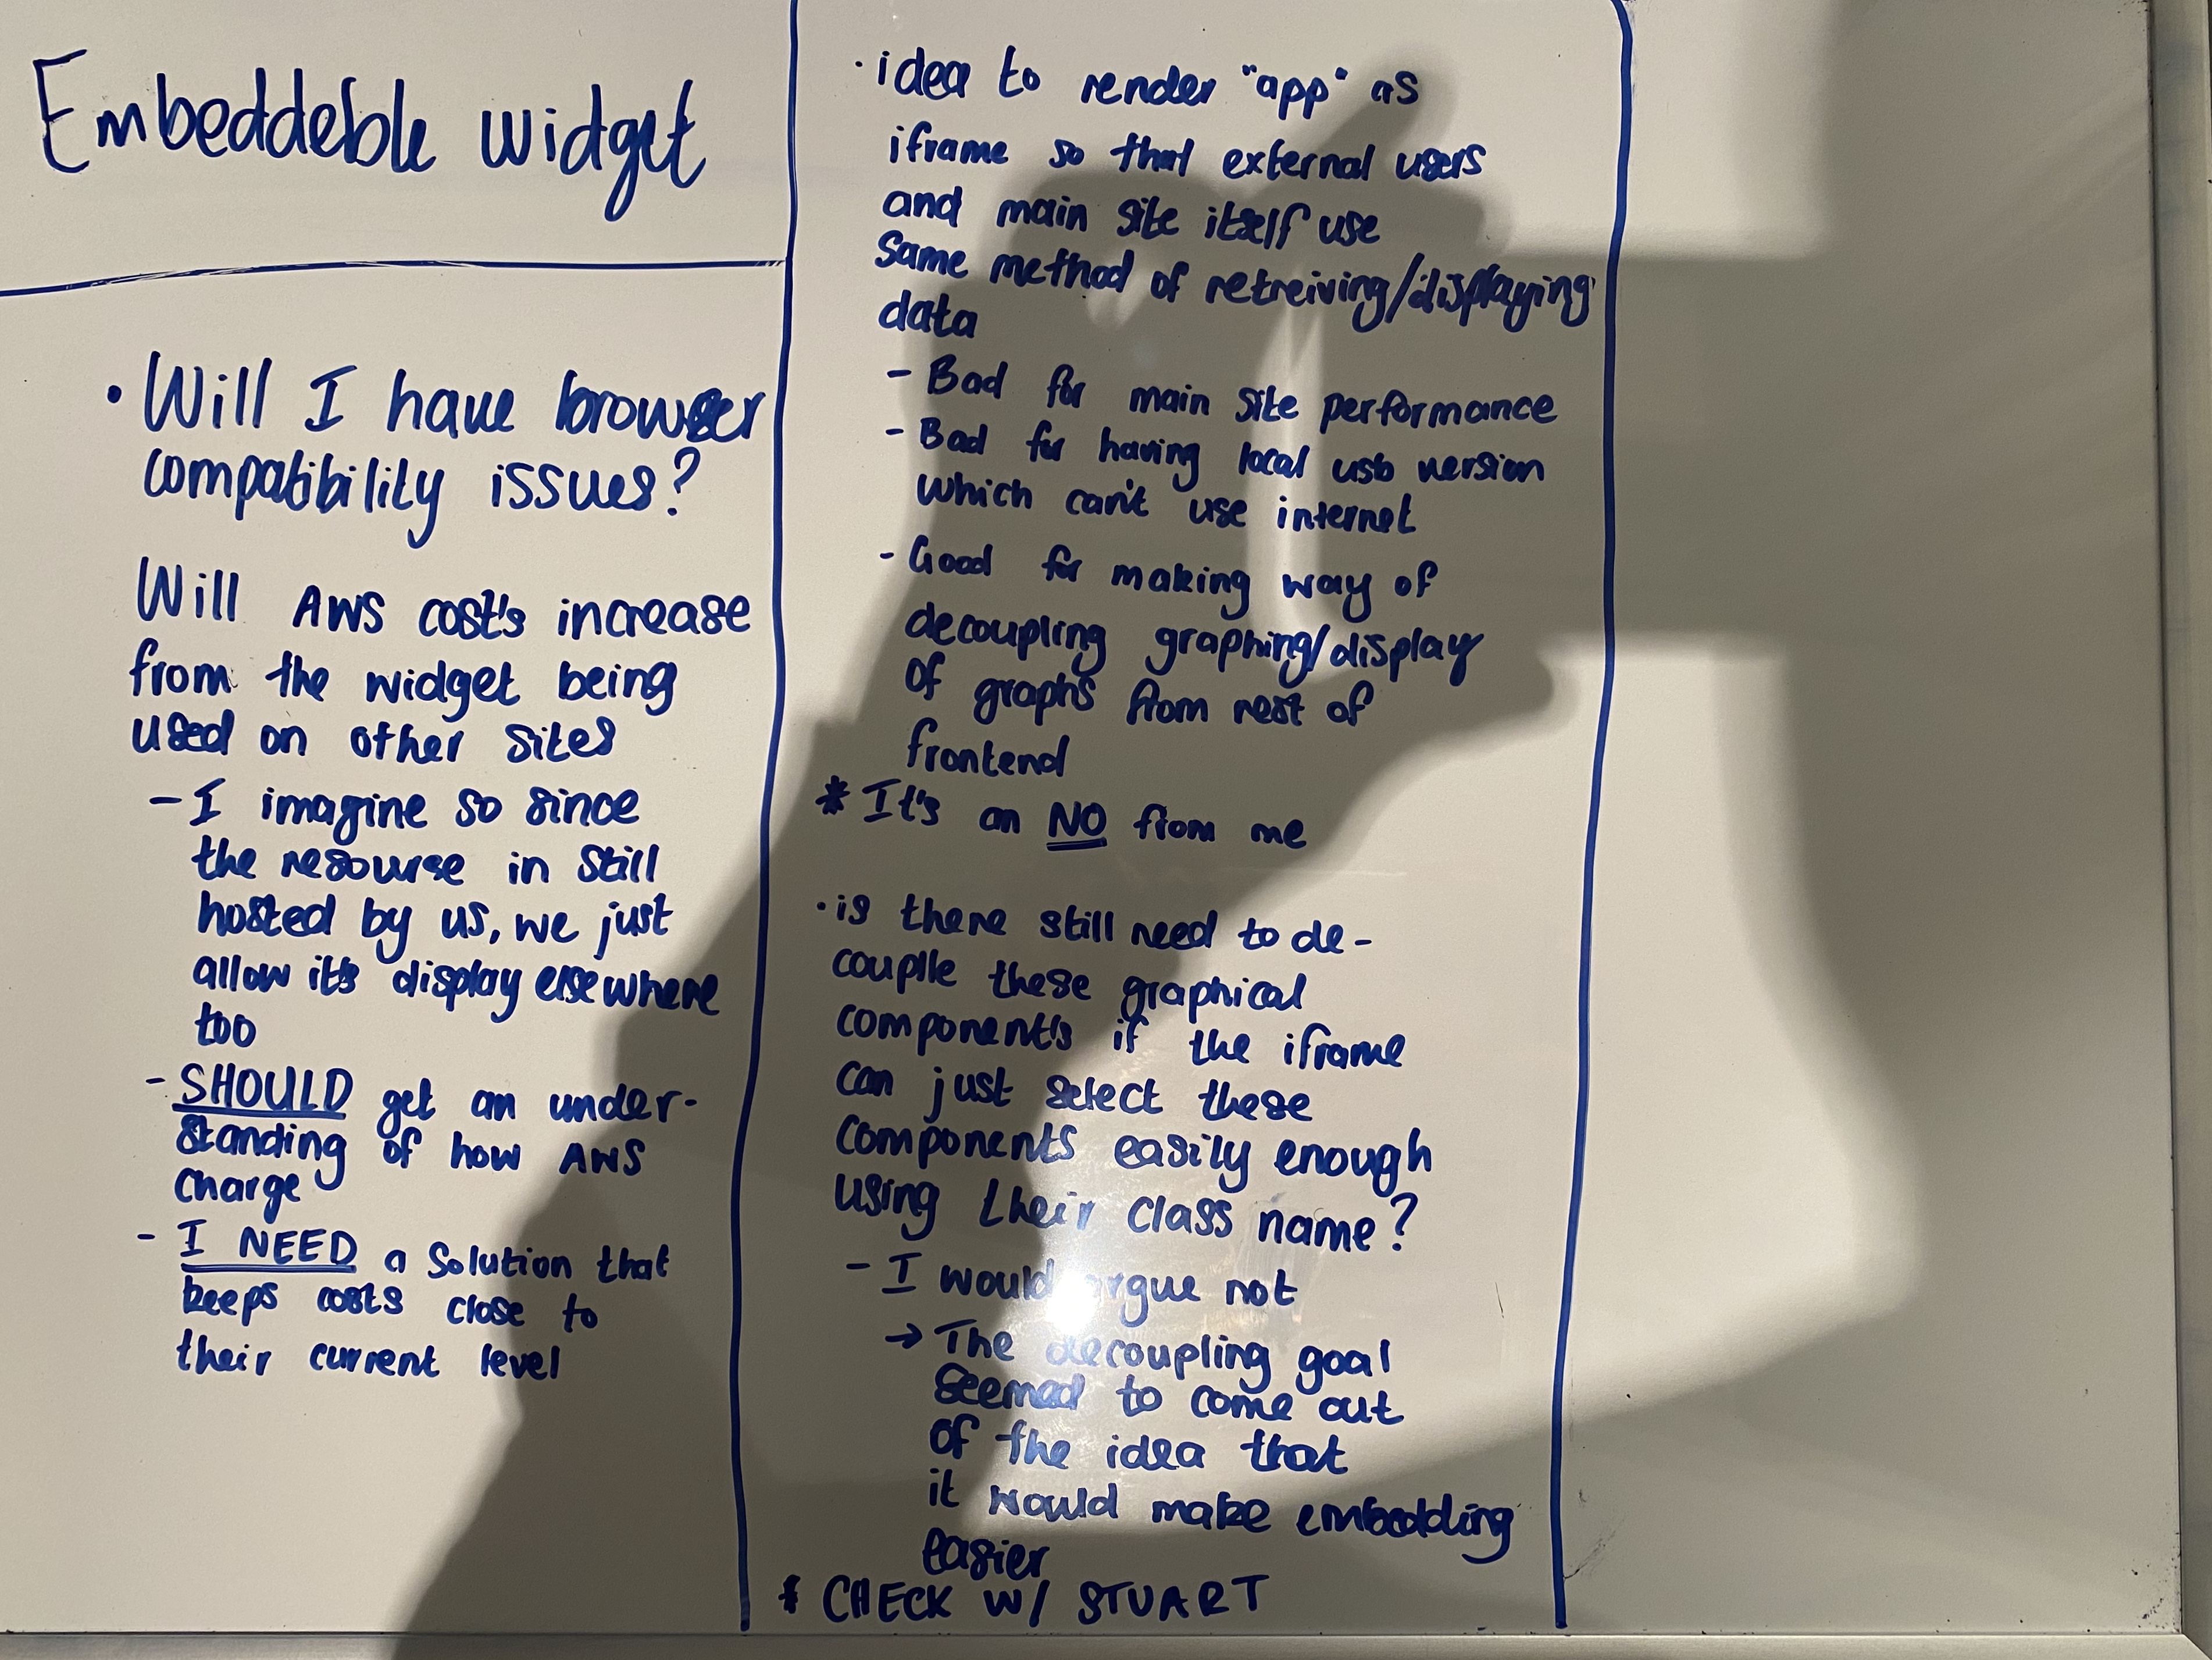 Embeddeble widget
• Will I have browser
compatibility issues?
Will AWS cost's increase
from the widget being
used on other sites
- I imagine so since
the resourse in still
hosted by us, we just
allow it's display elsewhere
too
- SHOULD get an under-
standing of how AWS
charge
- I NEED a solution that
keeps costs close to
their current level
• idea to render "app" as
iframe so that external users
and main site itself use
same method of retreiving/displaying
data
- Bad for main site performance
- Bad for having local usb version
which can't use internet
- Good for making way of
decoupling graphing/display
of graphs from rest of
frontend
* It's an NO from me
• is there still need to de-
couplle these graphical
components if the iframe
can just select these
components easily enough
using their class name?
- I would argue not
→ The decoupling goal
seemed to come out
of the idea that
it would make embedding
easier
* CHECK W/ STUART